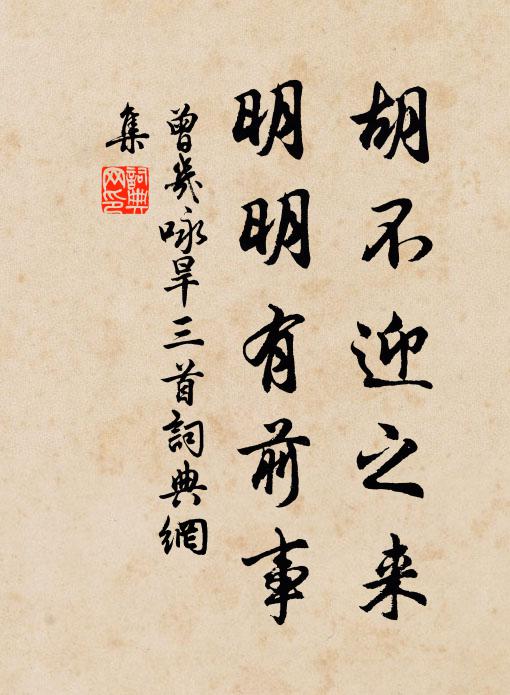 胡不迎之来
明明有前事
曾幾咏旱三首詞典網
集
詞典网印